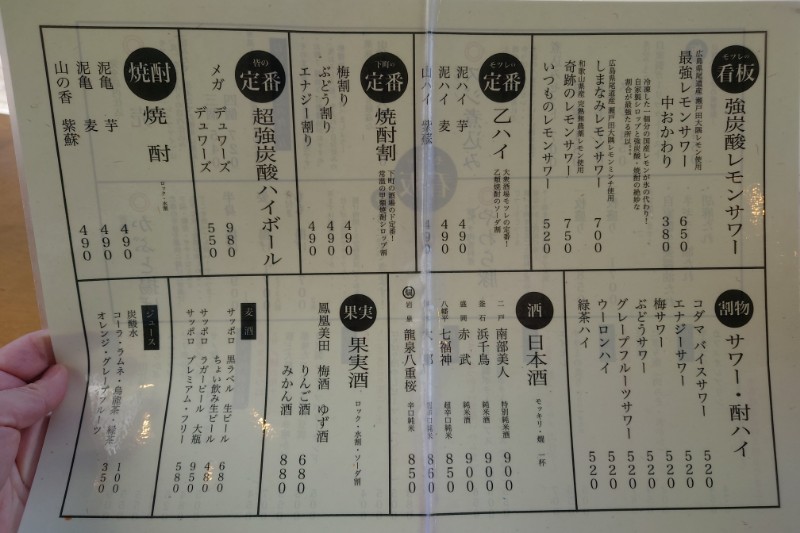 モツレの
看板
強炭酸レモンサワー
冷凍した一個分の国産レモンが氷の代わり！
自家製シロップと強炭酸・焼酎の絶妙な
割合が最強たる所以…
広島県尾道産 瀬戸田大隅レモン使用
最強レモンサワー 650
中おかわり 380
広島県尾道産 瀬戸田大隅レモンミンチ使用
しまなみレモンサワー 700
和歌山県産 完熟無農薬レモン使用
奇跡のレモンサワー 750
いつものレモンサワー 520
モツレの
定番
乙ハイ
大衆酒場モツレの定番！
乙類焼酎のソーダ割
泥ハイ 芋 490
泥ハイ 麦 490
山ハイ 紫蘇 490
下町の
定番
焼酎割
下町の酒場のド定番！
常温の甲類焼酎シロップ割
梅割り 490
ぶどう割り 490
エナジー割り 490
皆の
定番
超強炭酸ハイボール
メガ デュワーズ 980
デュワーズ 550
焼酎
焼酎
ロック・水割
泥亀 芋 490
泥亀 麦 490
山の香 紫蘇 490
割物
サワー・酎ハイ
コダマバイスサワー 520
エナジーサワー 520
梅サワー 520
ぶどうサワー 520
グレープフルーツサワー 520
ウーロンハイ 520
緑茶ハイ 520
酒
日本酒
モッキリ・燗 一杯
二戸 南部美人 特別純米酒 900
釜石 浜千鳥 純米酒 900
盛岡 赤武 純米酒 900
八幡平 七福神 超辛口純米 850
860
岩泉 龍泉八重桜 辛口純米 850
果実
果実酒
ロック・水割・ソーダ割
鳳凰美田 梅酒 ゆず酒
りんご酒 680
みかん酒 880
麦酒
サッポロ 黒ラベル 生ビール 680
ちょい飲み生ビール 480
サッポロ ラガービール 大瓶 950
サッポロ プレミアム・フリー 580
ジュース
炭酸水 100
コーラ・ラムネ・烏龍茶・緑茶
オレンジ・グレープフルーツ 350